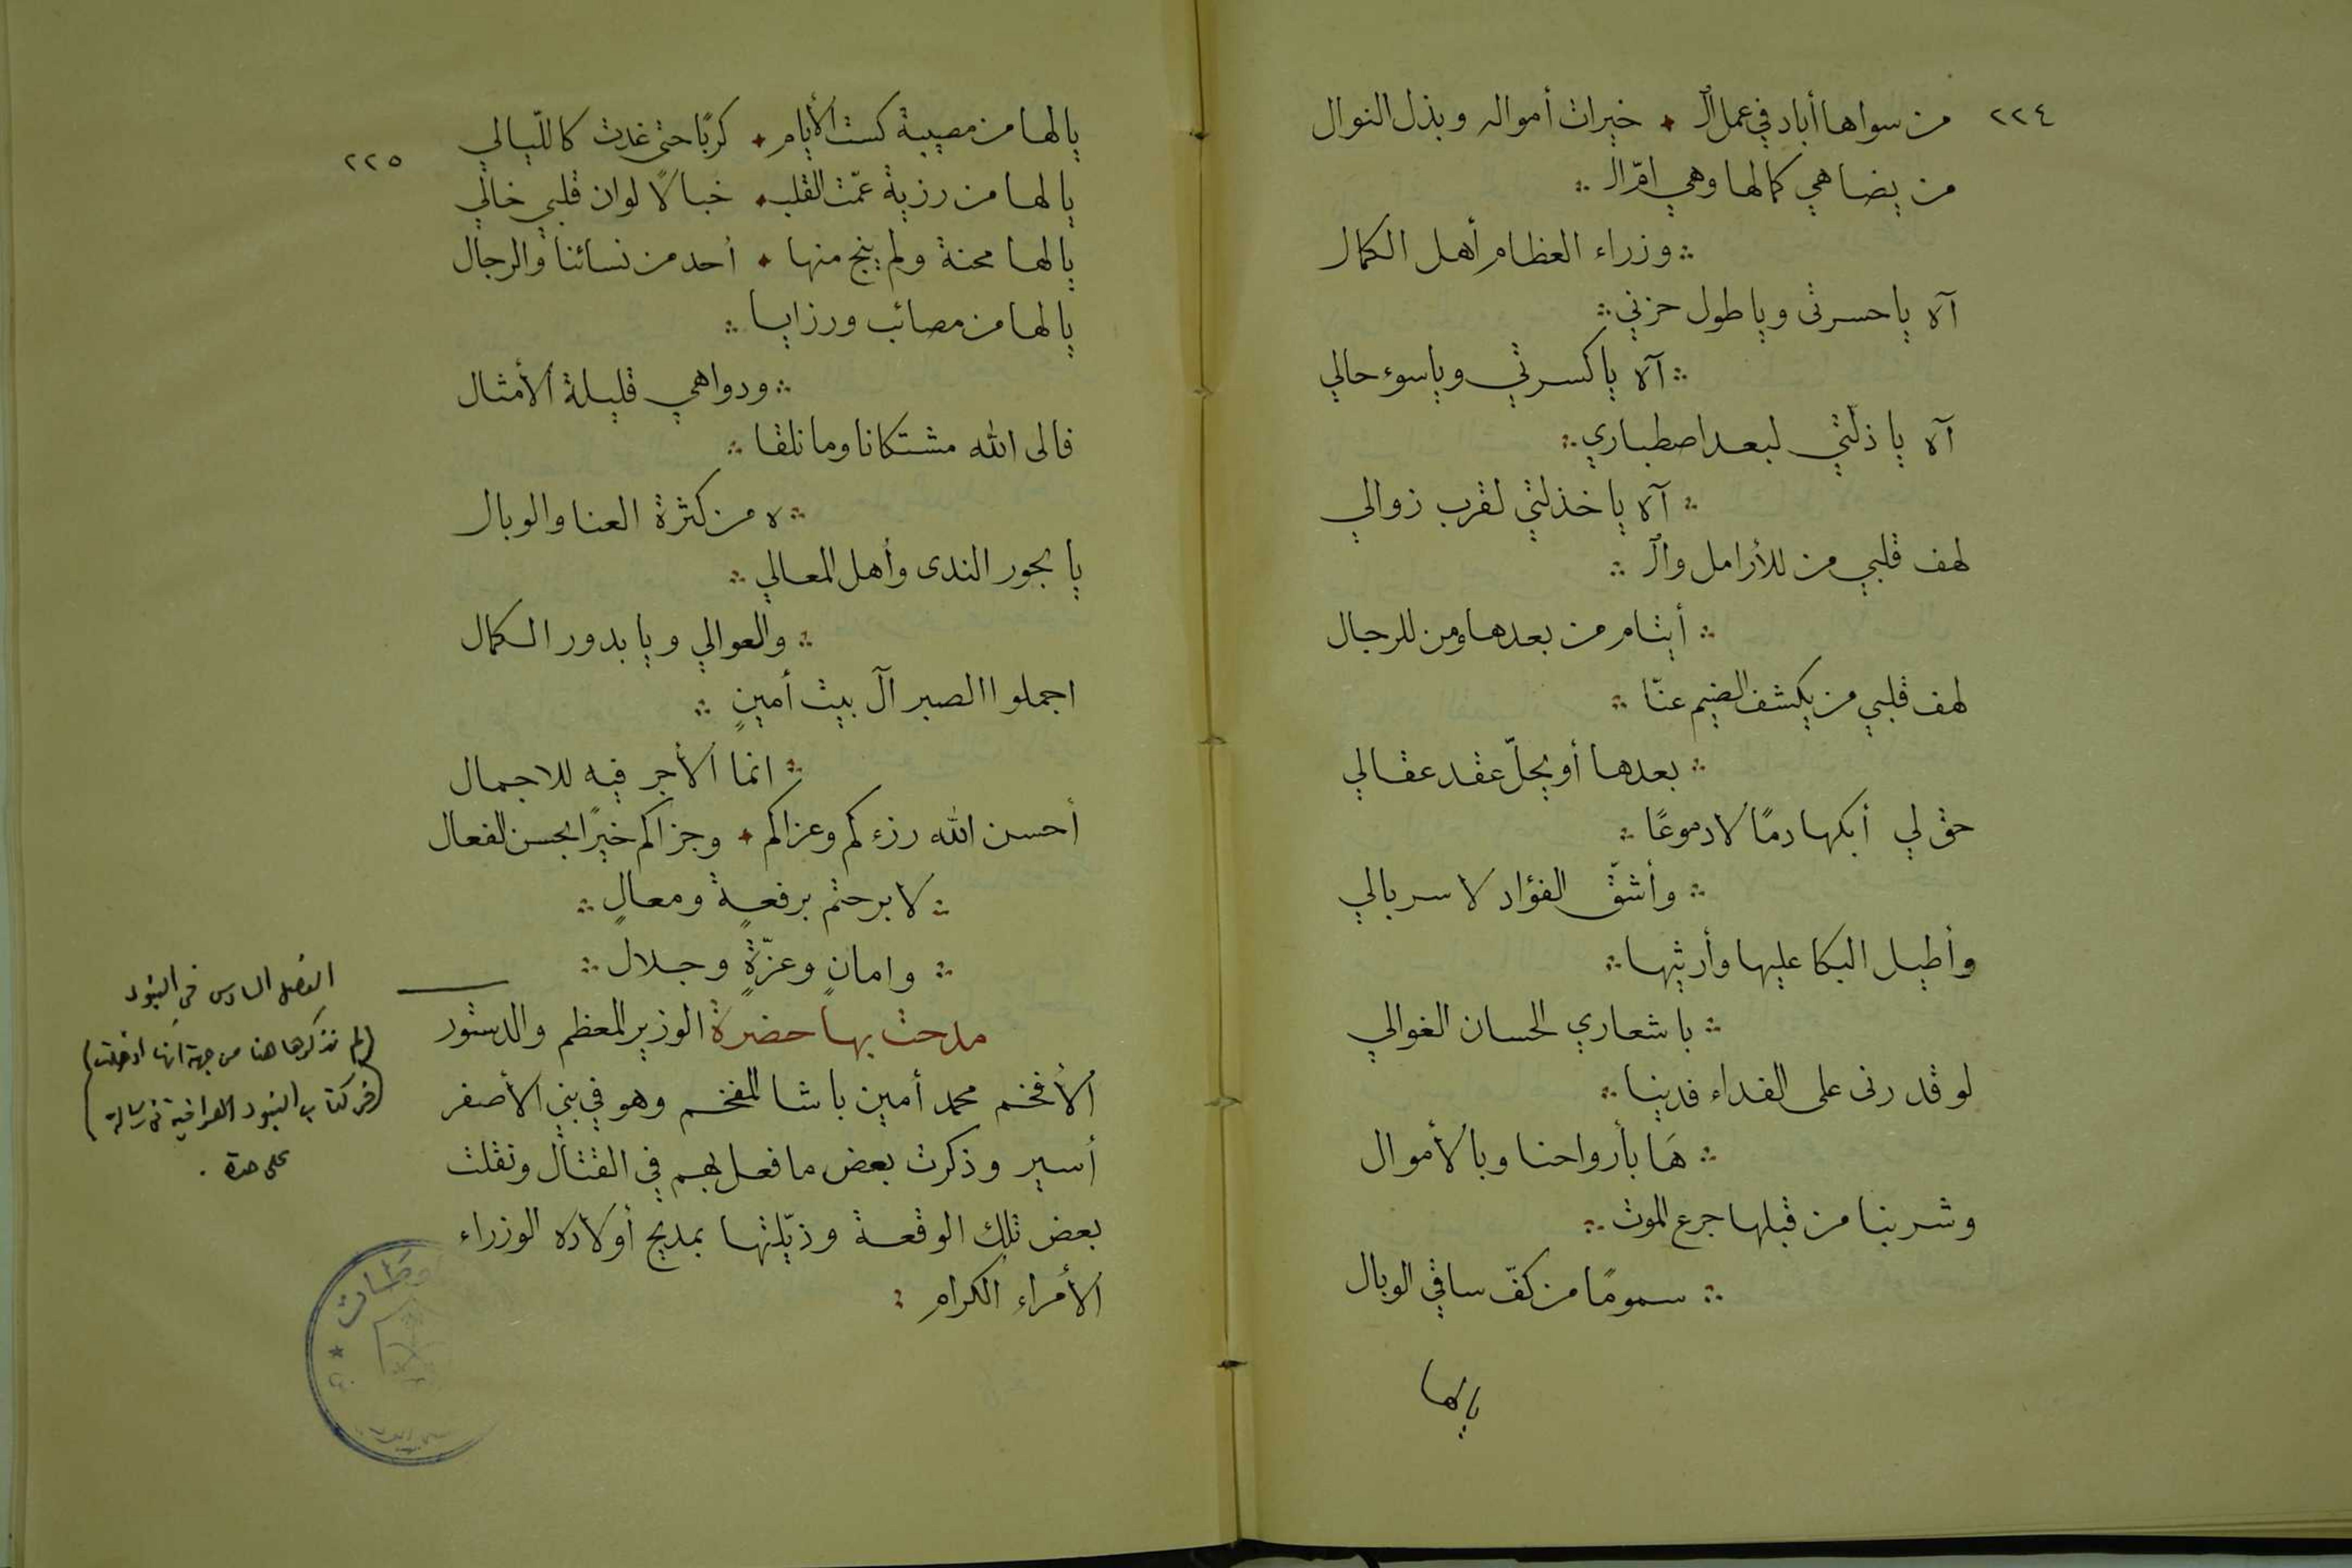 ٢٢٤
من سواها أباد في عمل ال ٠ خيرات أمواله وبذل النوال
من يضاهي كمالها وهي ام ال ∴
∴ وزراء العظام أهل الكمال
آه يا حسرتى ويا طول حزني ∴
∴ آه يا كسرتي وياسوء حالي
آه يا ذلّتي لبعد اصطباري ∴
∴ آه يا خذلتي لقرب زوالي
لهف قلبي من للأرامل وال ∴
∴ أيتام من بعدها ومن للرجال
لهف قلبي من يكشف الضيم عنّا ∴
∴ بعدها أو يحلّ عقد عقالي
حق لي أبكها دمًا لا دموعًا ∴
∴ وأشقّ الفؤاد لا سربالي
وأطيل البكا عليها وأرثيها ∴
∴ باشعاري الحسان الغوالي
لو قدرنى على الفداء فدينا ∴
∴ هَا بأرواحنا وبالأموال
وشربنا من قبلها جرع الموت ∴
∴ سمومًا من كفّ ساقي الوبال
يالها
٢٢٥
يا لها من مصيبة كست الأيام ٠ كربًا حتى غدت كاللّيالي
يا لها من رزية عمّت القلب ٠ خبالًا لوان قلبي خالي
يا لها محنة ولم ينج منها ٠ أحد من نسائنا والرجال
يا لها من مصائب ورزايا ∴
∴ ودواهي قليلة الأمثال
فالى الله مشتكانا وما نلقا ∴
∴ ه من كثرة العنا والوبال
يا بحور الندى وأهل المعالي ∴
∴ والعوالي ويا بدور الكمال
اجملوا الصبر آل بيت أمينٍ ∴
∴ انما الأجر فيه للاجمال
أحسن الله رزءكم وعزاكم ٠ وجزاكم خيرًا بحسن الفعال
∴ لا برحتم برفعةٍ ومعالٍ ∴
∴ وامانٍ وعزّةٍ وجلال ∴
مدحت بها حضرة الوزير المعظم والدستور
الأفخم محمد أمين باشا المفخم وهو في بني الأصفر
أسير وذكرت بعض ما فعل بهم في القتال ونقلت
بعض تلك الوقعة وذيّلتها بمديح أولاده الوزراء
الأمراء الكرام :
الفصل السادس في البنود
(لم نذكرها هنا من جهة أنها ادخلت)
(في كتاب البنود العراقية في رسالة)
على حدة .